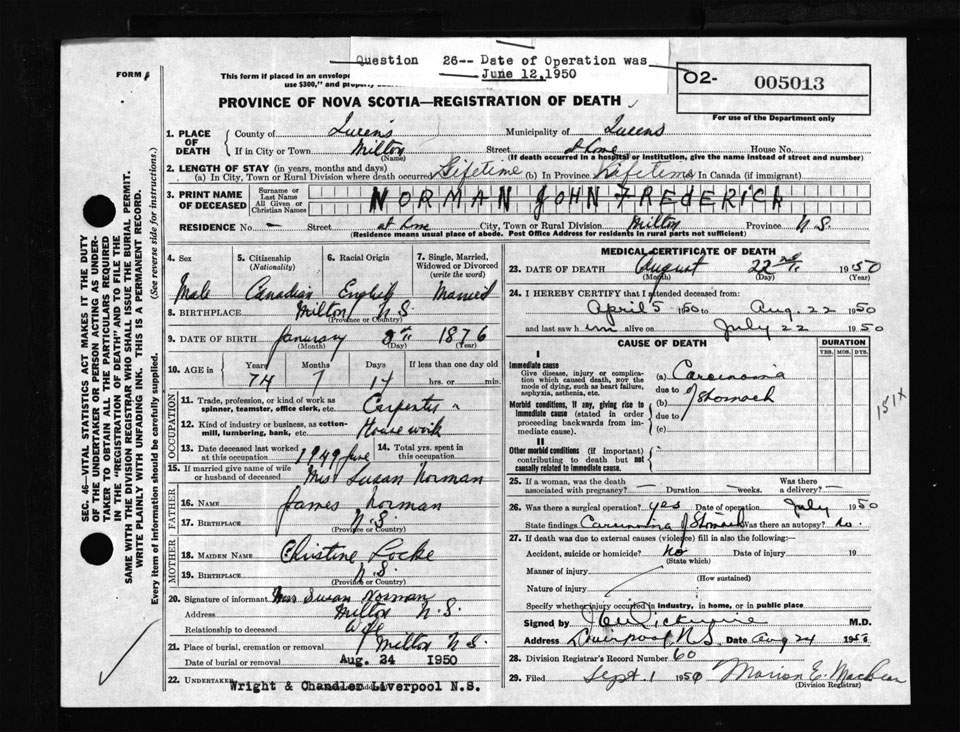 Question 26-- Date of Operation was
June 12,1950
FORM 6
This form if placed in an envelope
use $300," and property
02- 005013
For use of the Department only
PROVINCE OF NOVA SCOTIA—REGISTRATION OF DEATH
1. PLACE OF DEATH County of Queens Municipality of Queens
If in City or Town Milton (Name) Street at home House No.
(If death occurred in a hospital or institution, give the name instead of street and number)
2. LENGTH OF STAY (in years, months and days)
(a) In City, Town or Rural Division where death occurred Lifetime (b) In Province Lifetime In Canada (if immigrant)
3. PRINT NAME OF DECEASED Surname or Last Name All Given or Christian Names NORMAN JOHN FREDERICK
RESIDENCE No. — Street at home City, Town or Rural Division Milton Province N.S.
(Residence means usual place of abode. Post Office Address for residents in rural parts not sufficient)
4. Sex Male
5. Citizenship (Nationality) Canadian
6. Racial Origin English
7. Single, Married, Widowed or Divorced (write the word) Married
8. BIRTHPLACE Milton N.S. (Province or Country)
9. DATE OF BIRTH January (Month) 8th (Day) 1876 (Year)
10. AGE in Years 74 Months 7 Days 14 If less than one day old hrs. or min.
OCCUPATION
11. Trade, profession, or kind of work as spinner, teamster, office clerk, etc. Carpenter
12. Kind of industry or business, as cotton-mill, lumbering, bank, etc. House work
13. Date deceased last worked at this occupation 1949 June
14. Total yrs. spent in this occupation
15. If married give name of wife or husband of deceased Mrs Susan Norman
FATHER
16. NAME James Norman
17. BIRTHPLACE N.S. (Province or Country)
MOTHER
18. MAIDEN NAME Christine Locke
19. BIRTHPLACE N.S. (Province or Country)
20. Signature of informant Mrs Susan Norman
Address Milton N.S.
Relationship to deceased Wife
21. Place of burial, cremation or removal Milton N.S.
Date of burial or removal Aug. 24 1950
22. UNDERTAKER Wright & Chandler Liverpool N.S.
MEDICAL CERTIFICATE OF DEATH
23. DATE OF DEATH August (Month) 22nd (Day) 1950 (Year)
24. I HEREBY CERTIFY that I attended deceased from:
April 5 1950 to Aug. 22 1950
and last saw him alive on July 22 1950
CAUSE OF DEATH
DURATION
YRS. MOS. DYS.
I
Immediate cause
Give disease, injury or complication which caused death, NOT the mode of dying, such as heart failure, asphyxia, asthenia, etc.
(a) Carcinoma
due to of Stomach
Morbid conditions, if any, giving rise to immediate cause (stated in order proceeding backwards from immediate cause).
(b)
due to
(c)
151X
II
Other morbid conditions (if important) contributing to death but not causally related to immediate cause.
25. If a woman, was the death associated with pregnancy? — Duration — weeks. Was there a delivery? —
26. Was there a surgical operation? yes Date of operation July 1950
State findings Carcinoma of Stomach Was there an autopsy? no.
27. If death was due to external causes (violence) fill in also the following:—
Accident, suicide or homicide? No (State which) Date of injury 19
Manner of injury (How sustained)
Nature of injury
Specify whether injury occurred in industry, in home, or in public place
Signed by M.D.
Address Liverpool, N.S. Date Aug 24 1950
28. Division Registrar's Record Number 60
29. Filed Sept. 1 1950 Marion E. (Division Registrar)
SEC. 46—VITAL STATISTICS ACT MAKES IT THE DUTY
OF THE UNDERTAKER OR PERSON ACTING AS UNDER-
TAKER TO OBTAIN ALL THE PARTICULARS REQUIRED
IN THE "REGISTRATION OF DEATH" AND TO FILE THE
SAME WITH THE DIVISION REGISTRAR WHO SHALL ISSUE THE BURIAL PERMIT.
WRITE PLAINLY WITH UNFADING INK. THIS IS A PERMANENT RECORD.
Every item of information should be carefully supplied. (See reverse side for instructions.)